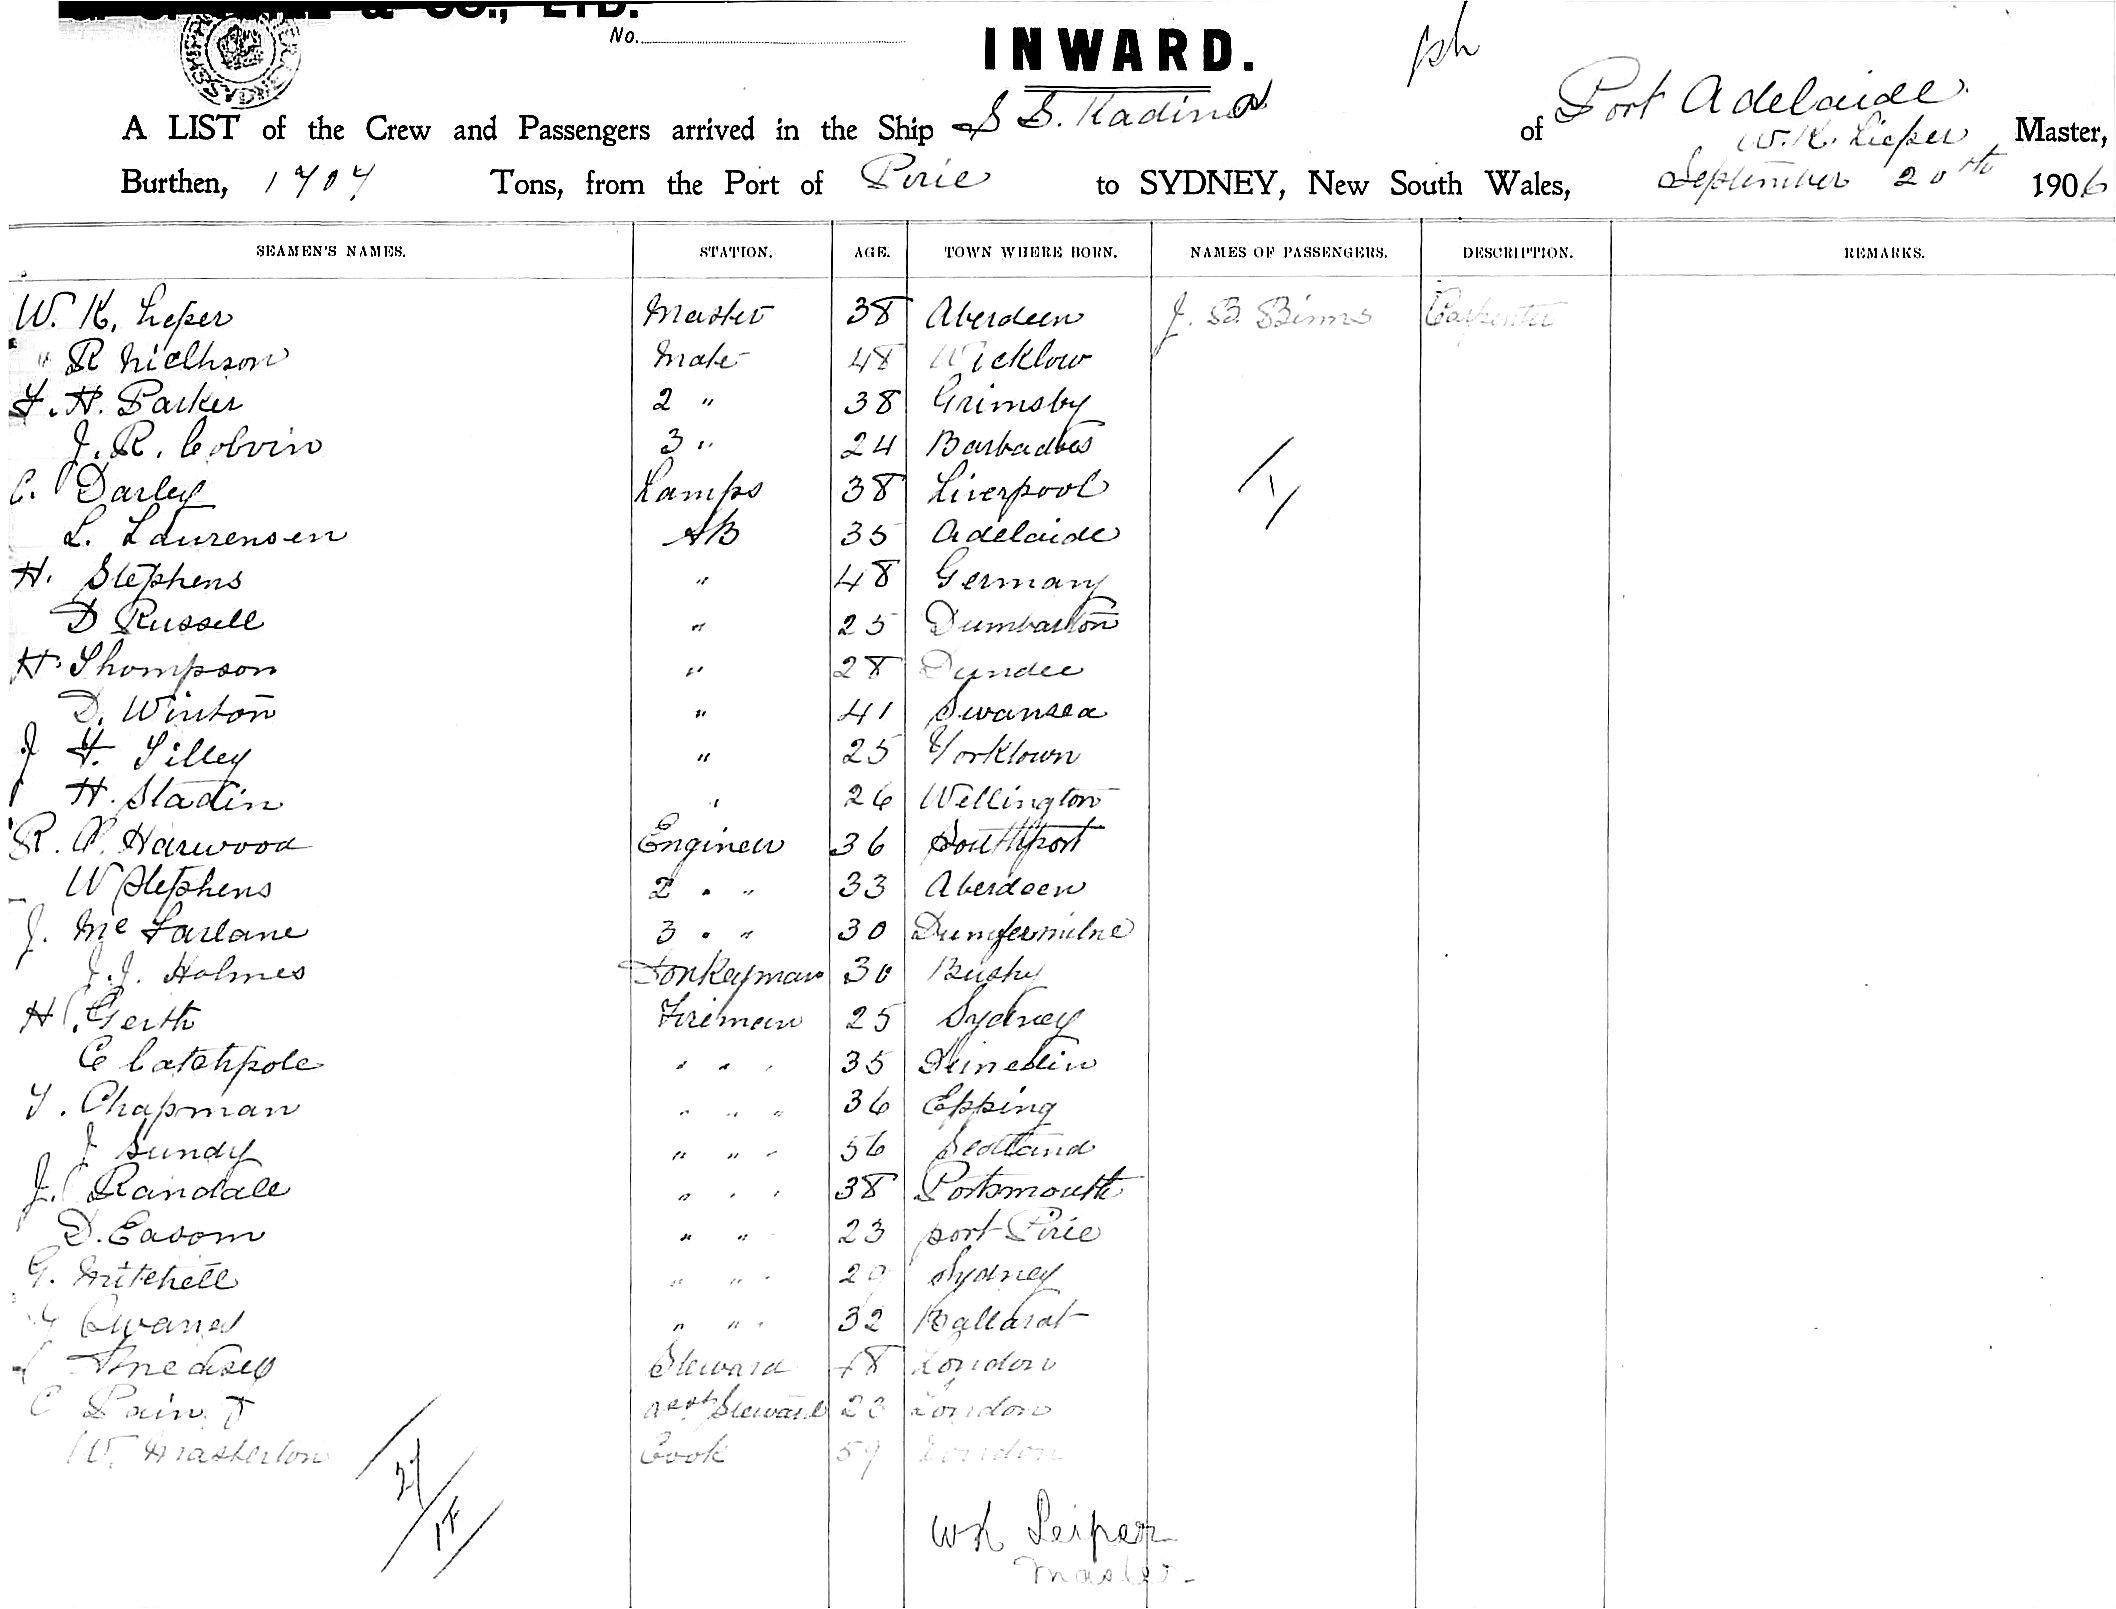 & CO., LTD.
No.
INWARD.
A LIST of the Crew and Passengers arrived in the Ship S S. Kadina of Port Adelaide
W. K. Lieper Master,
Burthen, 1707 Tons, from the Port of Pirie to SYDNEY, New South Wales, September 20th 1906
SEAMEN'S NAMES. STATION. AGE. TOWN WHERE BORN. NAMES OF PASSENGERS. DESCRIPTION. REMARKS.
W. K. Leper Master 38 Aberdeen J. B. Binns Carpenter
R Mate 48 Wicklow
H. Parker 2 " 38 Grimsby
J. R. Colvin 3 " 24 Barbados
C. Darley Lamps 38 Liverpool
L. Laurensen AB 35 Adelaide
H. Stephens " 48 Germany
D Russell " 25 Dumbarton
H. Thompson " 28 Dundee
D. Winton " 41 Swansea
J Tilley " 25 Yorktown
H. Stadin " 26 Wellington
R. Harwood Engineer 36 Southport
W Stephens 2 " " 33 Aberdeen
J. Mc Farlane 3 " " 30 Dumfermilne
J. J. Holmes Donkeyman 30
H. Gerth Fireman 25 Sydney
C Catchpole " " " 35 Dunedin
T. Chapman " " " 36 Epping
J Sundy " " " 56 Scotland
J. Randall " " " 38 Portsmouth
D. Easom " " " 23 port Pirie
G. Mitchell " " " 29 Sydney
" " " 32 Ballarat
Steward 48 London
C Asst Steward 23 London
W. Masterton Cook 59 London
WK Leiper
Master